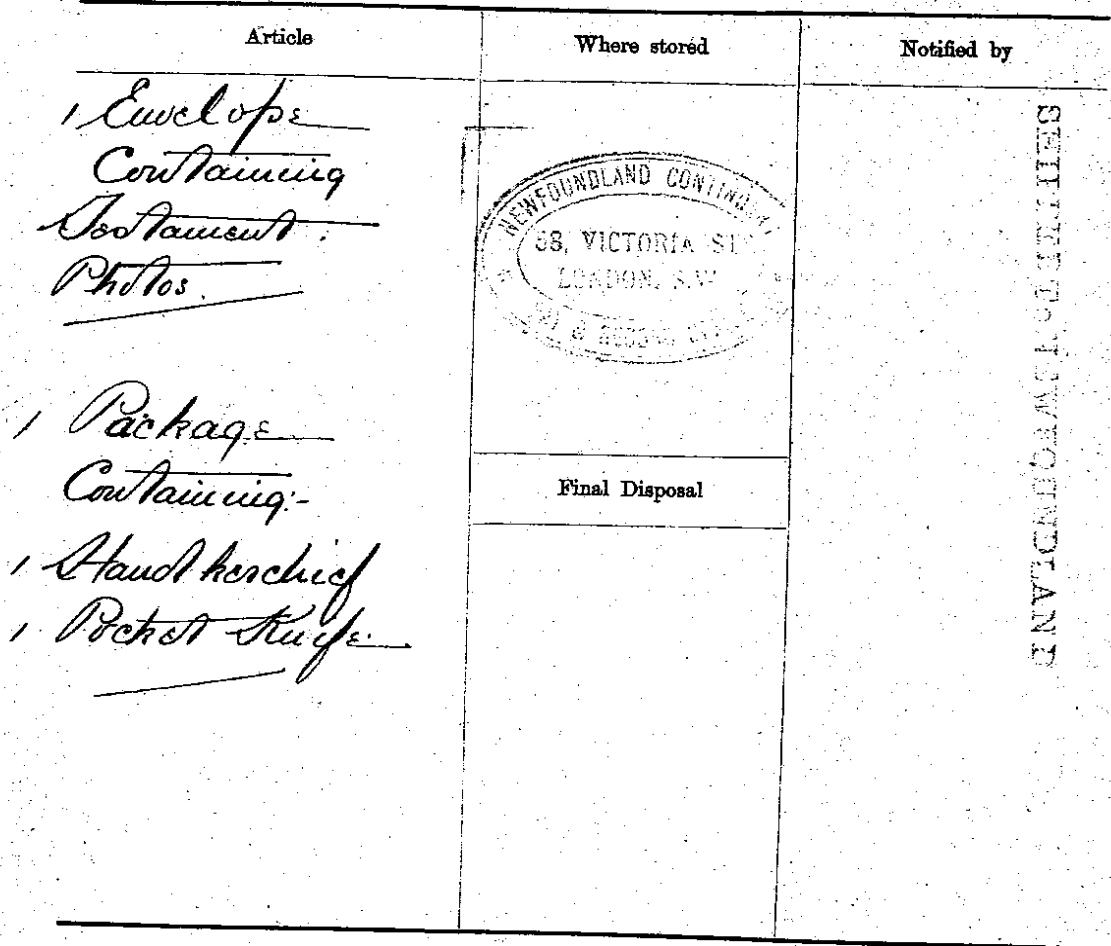 Article
Where stored
Notified by
1 Envelope
Containing
Testament.
Photos.
1 Package
Containing:-
1 Handkerchief
1 Pocket Knife
NEWFOUNDLAND
58, VICTORIA ST
LONDON, S.W.
&
Final Disposal
TO NEWFOUNDLAND